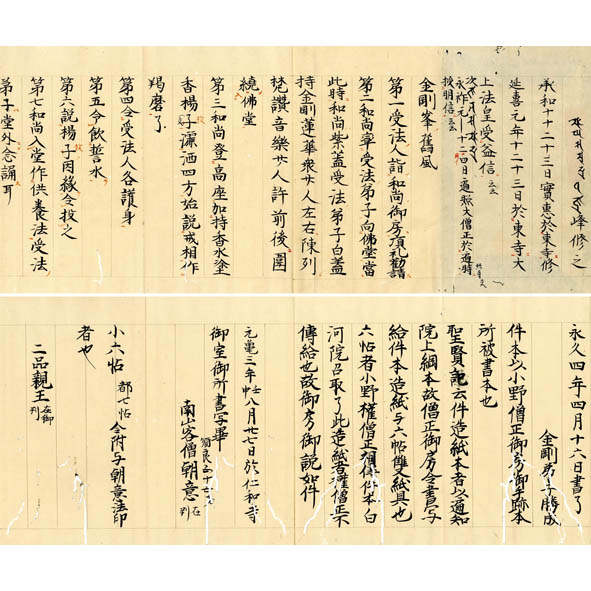 峰修之
承和十年十二十三日實惠於東寺修
延喜元年十二十三日於東寺大
上法皇受益信云云
永祚元十二四日遍照大僧正於
授明信云云
金剛峯舊風
第一受法人詣和尚御房頂礼勸請
第二和尚率受法弟子向佛堂當
此時和尚紫蓋受法弟子白蓋
持金剛蓮華衆廿人左右陳列
梵讃音樂廿人許前後圍
繞佛堂
第三和尚登高座加持香水塗
香楊子灑洒四方始説戒相作
羯磨了
第四令受法人各護身
第五令飲誓水
第六説楊子因緣令投之
第七和尚入堂作供養法受法
弟子堂外念誦耳
永久四年四月十六日書了
金剛弟子勝成
件本以小野僧正御房御手跡本
所被書本也
聖賢記云件造紙本者以通知
院上綱本故僧正御房令書写
給件本造紙号六帖雙紙具也
六帖者小野權僧正件本白
河院召取了此造紙者權僧正不
傳給也故御房御説如件
元亀三年壬申八月廿七日於仁和寺
御室御所書写畢
南山客僧朝意在判
小六帖 都七帖 令附与朝意法印
者也
二品親王在御判